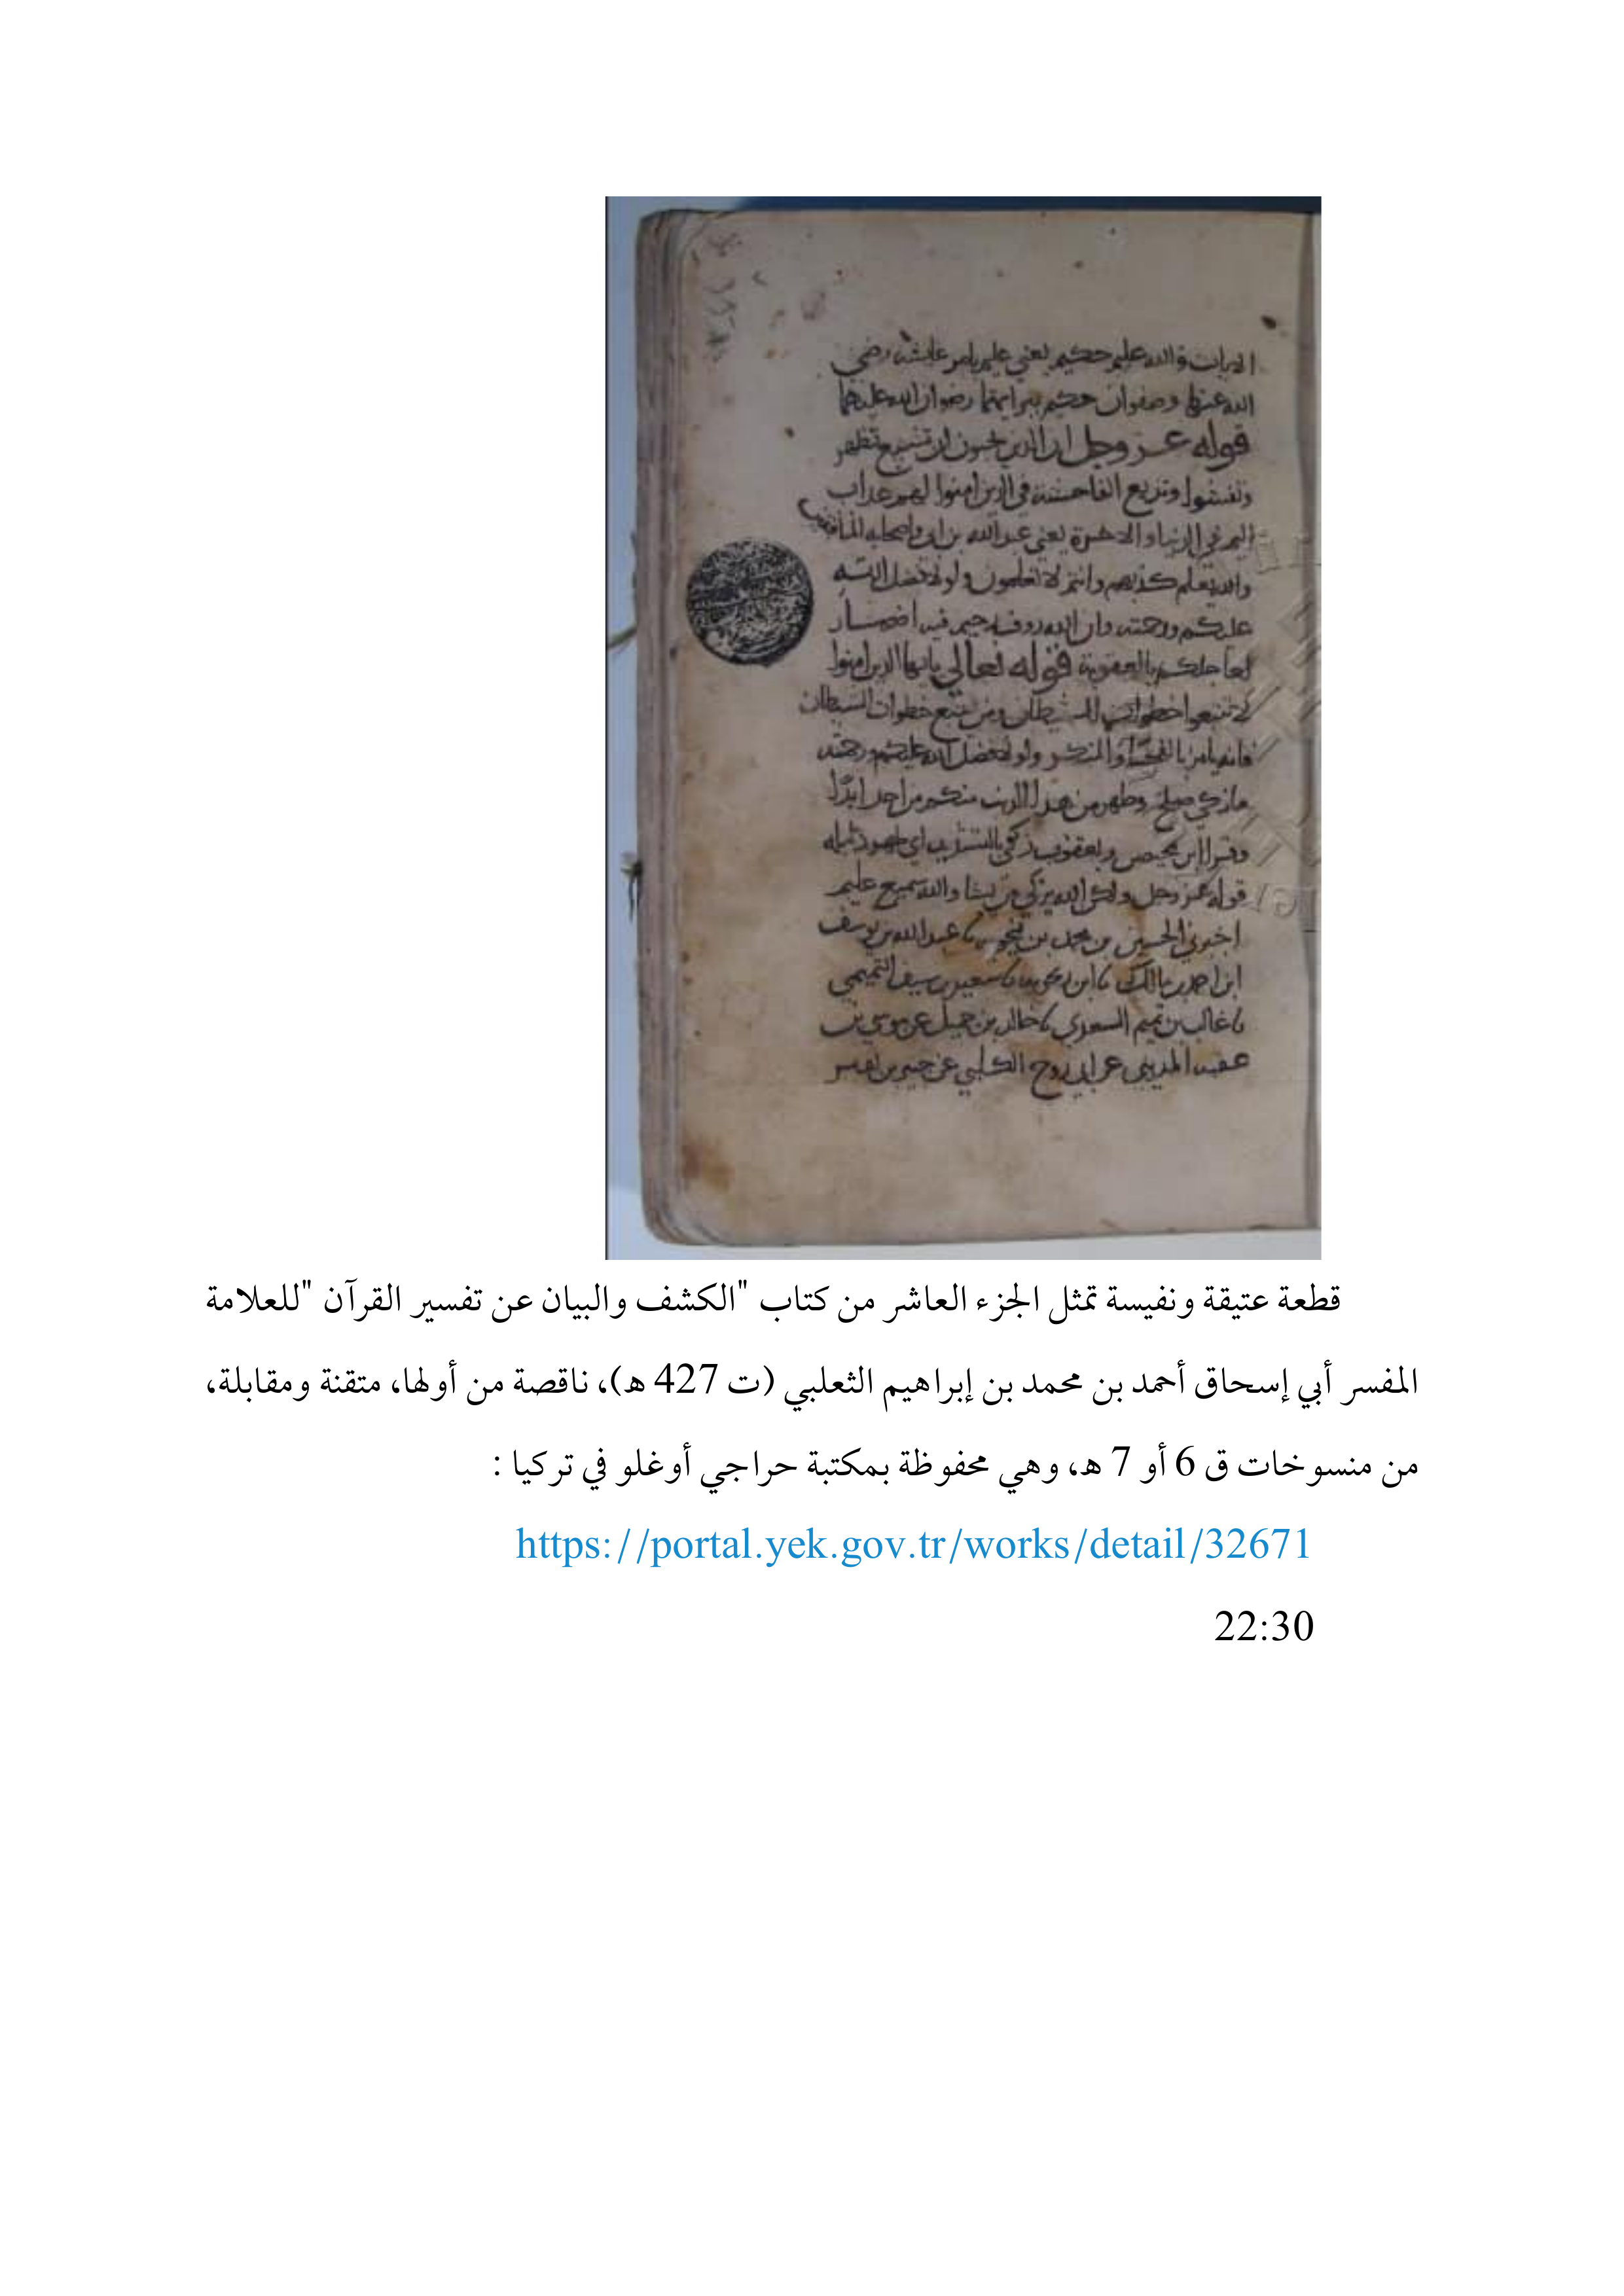 الايات والله عليم حكيم يعني عليم بامر عايشه رضي
الله عنها وصفوان حكيم ببراتهما رضوان الله عليهما
قوله عز وجل ان الذين يحبون ان تشيع تظهر
وتفشوا وتذيع الفاحشة في الذين امنوا لهم عذاب
اليم في الدنيا والاخرة يعني عبد الله بن ابي واصحابه المنافقين
والله يعلم كذبهم وانتم لا تعلمون ولولا فضل الله
عليكم ورحمته وان الله روف رحيم فيه اضمار
لعاجلكم بالعقوبة قوله تعالى يايها الذين امنوا
لا تتبعوا خطوات الشيطان ومن يتبع خطوات الشيطان
فانه يامر بالفحشا والمنكر ولولا فضل الله عليكم ورحمته
ما زكي صلح وطهر من هذا الذنب منكم من احد ابدا
وقرا ابن محيصن ويعقوب زكي بالتشديد اي طهر
قوله عز وجل ولكن الله يزكي من يشا والله سميع عليم
اخبرني الحسين بن محمد بن فنجويه عبد الله بن يوسف
ابن احمد بن مالك سعيد بن سيف التميمي
غالب بن تميم السعدي خالد بن جميل عن موسى بن
عقبه المديني عن ابي روح الكلبي عن
قطعة عتيقة ونفيسة تمثل الجزء العاشر من كتاب "الكشف والبيان عن تفسير القرآن "للعلامة
المفسر أبي إسحاق أحمد بن محمد بن إبراهيم الثعلبي (ت 427 هـ)، ناقصة من أولها، متقنة ومقابلة،
من منسوخات ق 6 أو 7 هـ، وهي محفوظة بمكتبة حراجي أوغلو في تركيا :
https://portal.yek.gov.tr/works/detail/32671
22:30